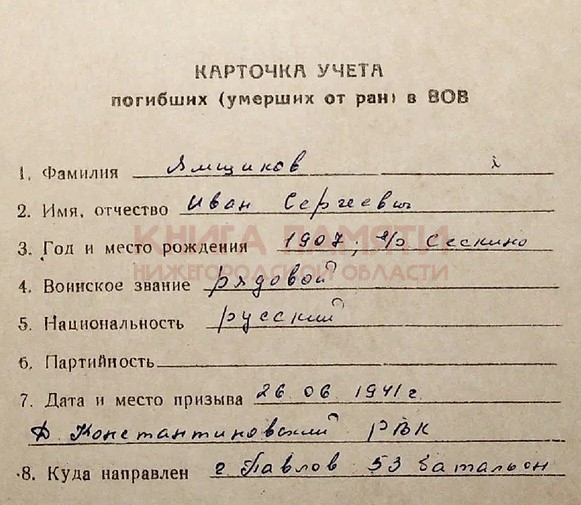 КАРТОЧКА УЧЕТА
погибших (умерших от ран) в ВОВ
1. Фамилия Ямщиков
2. Имя, отчество Иван Сергеевич
КНИГА ПАМЯТИ
3. Год и место рождения 1907; Сескино
НИЖЕГОРОДСКОЙ ОБЛАСТИ
4. Воинское звание рядовой
5. Национальность русский
6. Партийность
7. Дата и место призыва 26 06 1941 г
Д. Константиновский РВК
8. Куда направлен г Павлов 53 батальон